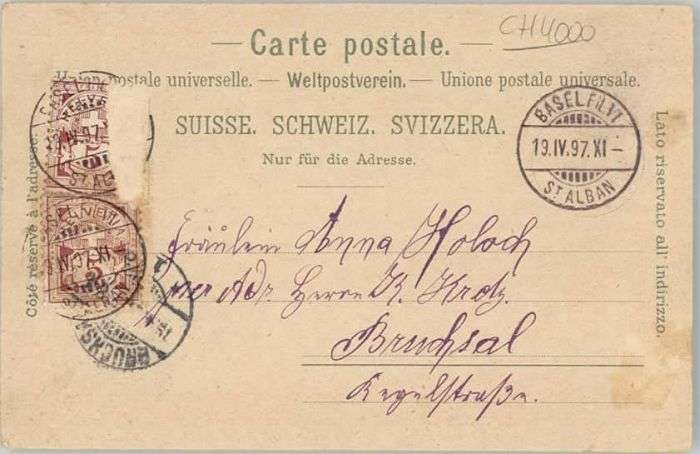 CH4000
— Carte postale. —
Union postale universelle. — Weltpostverein. — Unione postale universale.
SUISSE. SCHWEIZ. SVIZZERA.
Nur für die Adresse.
Côté réservé à l'adresse.
Lato riservato all' indirizzo.
BASEL FIL. VI
19.IV.97.XI –
ST ALBAN
Fräulein Anna Holoch
per Adr. Herrn K. Krotz.
Bruchsal
Kegelstraße.
ST ALBAN
BRUCHSAL